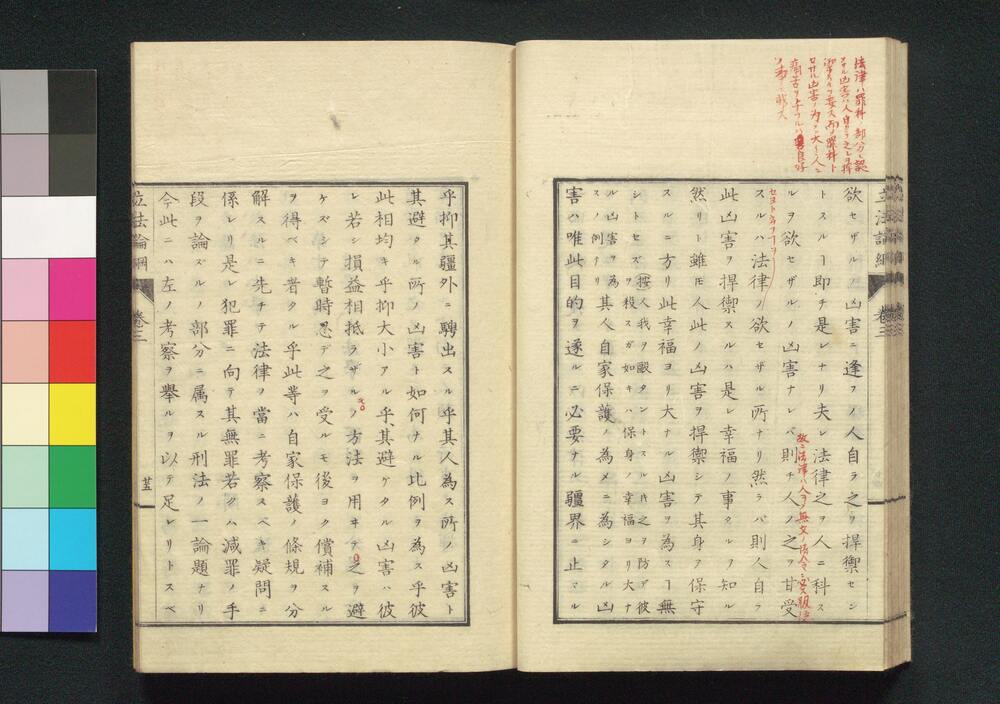 欲セザルノ凶害ニ逢フノ人自ラ之ヲ捍禦セシ
トスルヿ即チ是レナリ夫レ法律之ヲ人ニ科ス
ルヲ欲セザルノ凶害ナレバ則チ人ノ之ヲ甘受
スルハ法律ノ欲セザル所ナリ然ラバ則人自ラ
此凶害ヲ捍禦スルハ是レ幸福ノ事タルヲ知ル
然リト雖𪜈人此ノ凶害ヲ捍禦シテ其身ヲ保守
スルニ方リ此幸福ヨリ大ナル凶害ヲ為スヿ無
シトセズ按人我ヲ毆タントスル𪜈之ヲ防ア彼ヲ殺スガ如キハ保身ノ幸福ヨリ大ナ
ル凶害ヲ為スノ例ナリ其人自家保護ノ為メニ為シタル凶
害ハ唯此目的ヲ遂ルニ必要ナル疆界ニ止マル
立法論綱 卷三
乎抑其疆外ニ騁出スル乎其人為ス所ノ凶害ト
其避タル所ノ凶害ト如何ナル比例ヲ為ス乎彼
此相均キ乎抑大小アル乎其避ケタル凶害ハ彼
レ若シ損益相抵ラザルノ方法ヲ用ヰテ之ヲ避
ケズシテ暫時忍デ之ヲ受ルモ後ヨク償補スル
ヲ得ベキ者タル乎此等ハ自家保護ノ條規ヲ分
解スルニ先チテ法律ノ當ニ考察スベキ疑問ニ
係レリ是レ犯罪ニ向テ其無罪若クハ減罪ノ手
段ヲ論ズルノ部分ニ属スル刑法ノ一論題ナリ
今此ニハ左ノ考察ヲ擧ルヲ以テ足レリトスベ
立法論綱 卷三